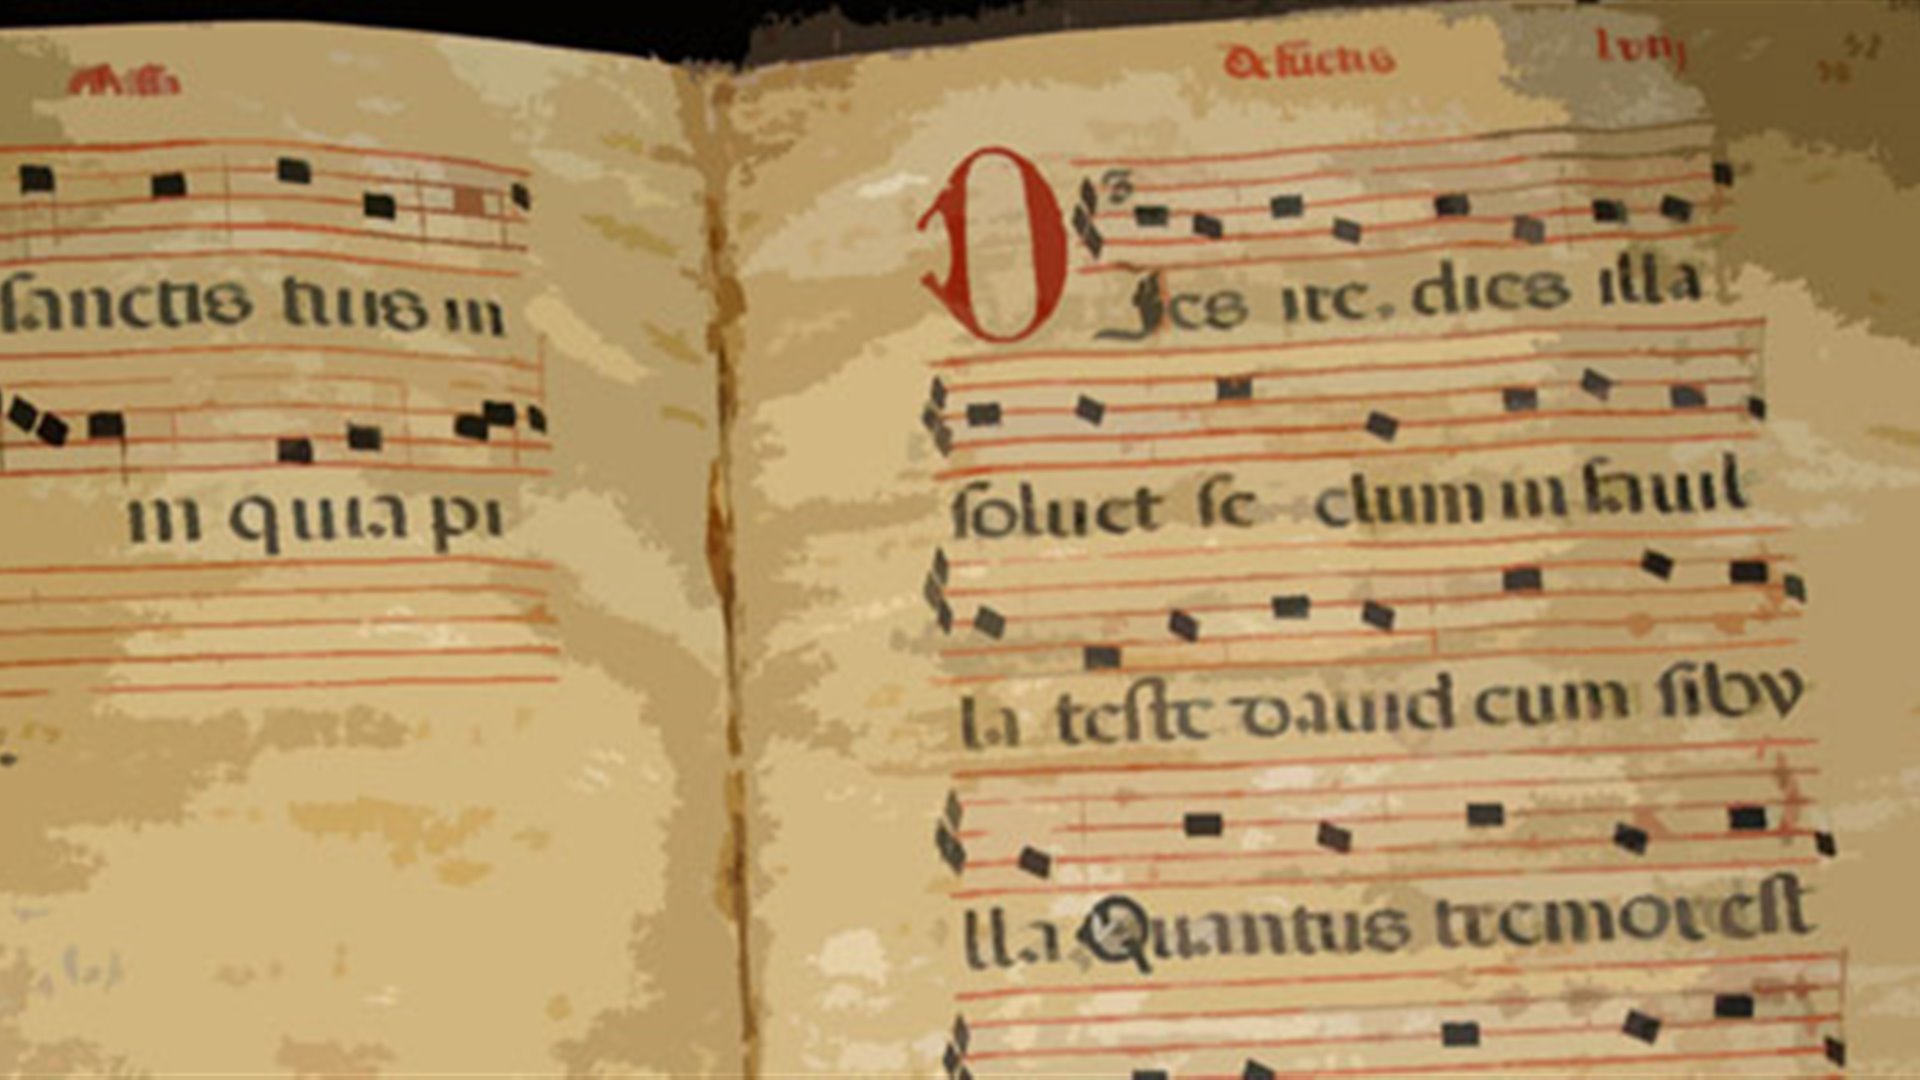 Missa
sanctis tuis in
in quia pi
Defūctis lviij
DIes ire. dies illa
soluet se clum in fauil
la teste dauid cum siby
lla Quantus tremor est